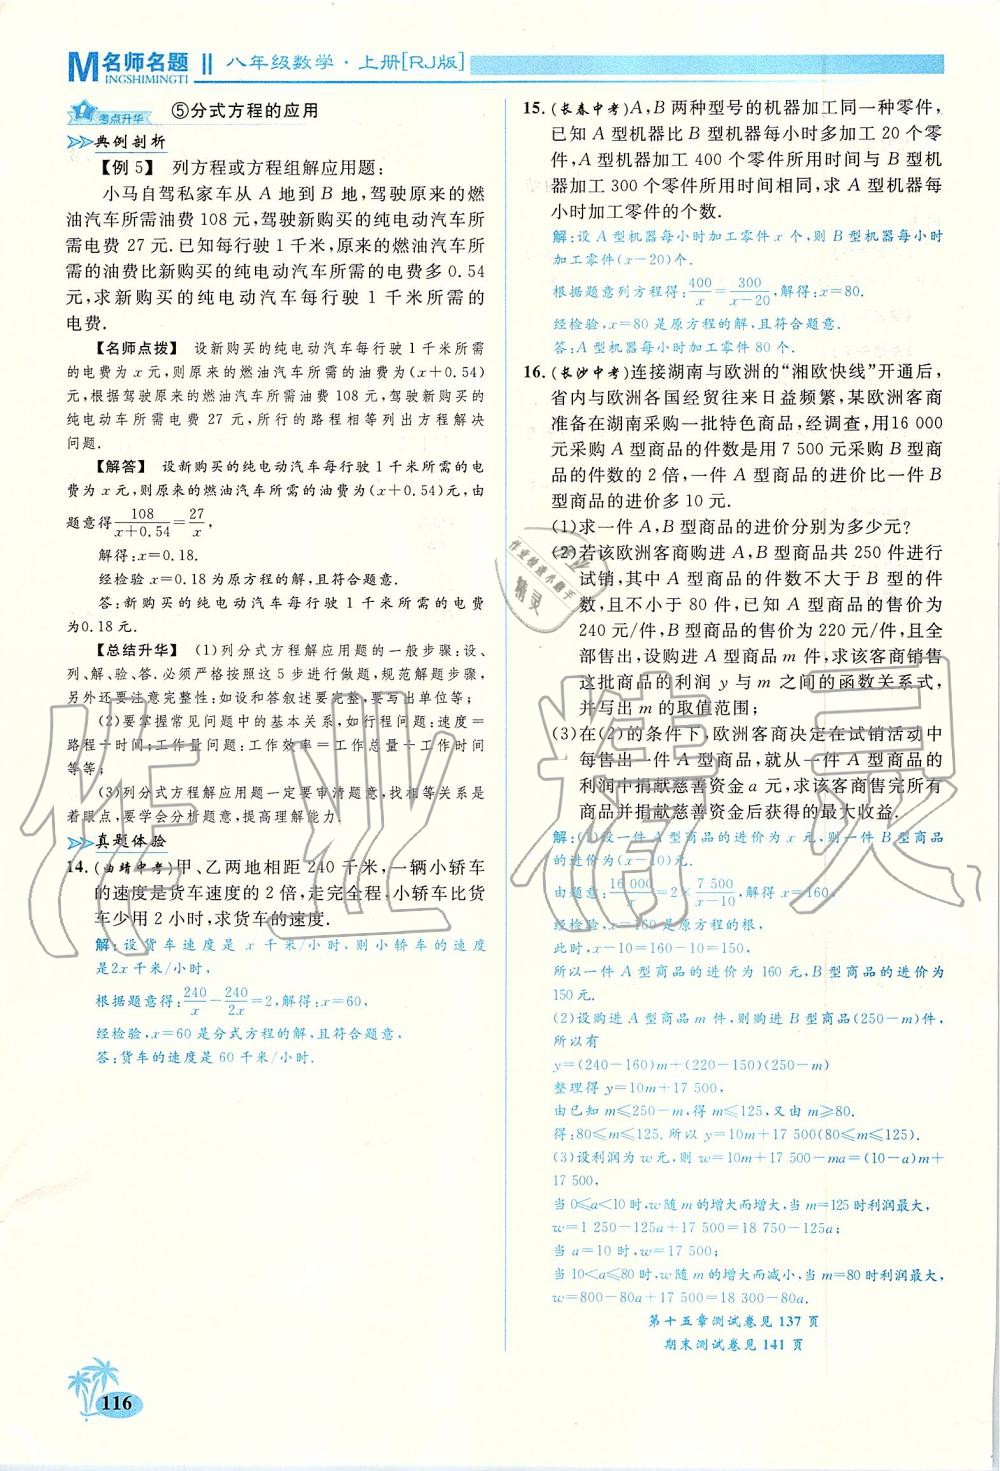 M名师名题 ‖ 八年级数学·上册[RJ版]
INGSHIMINGTI
考点升华 ⑤分式方程的应用
典例剖析
【例 5】 列方程或方程组解应用题：
小马自驾私家车从 A 地到 B 地,驾驶原来的燃
油汽车所需油费 108 元,驾驶新购买的纯电动汽车所
需电费 27 元.已知每行驶 1 千米,原来的燃油汽车所
需的油费比新购买的纯电动汽车所需的电费多 0.54
元,求新购买的纯电动汽车每行驶 1 千米所需的
电费.
【名师点拨】 设新购买的纯电动汽车每行驶 1 千米所需
的电费为 x 元,则原来的燃油汽车所需的油费为(x+0.54)
元,根据驾驶原来的燃油汽车所需油费 108 元,驾驶新购买的
纯电动汽车所需电费 27 元,所行的路程相等列出方程解决
问题.
【解答】 设新购买的纯电动汽车每行驶 1 千米所需的电
费为 x 元,则原来的燃油汽车所需的油费为(x+0.54)元,由
题意得108/(x+0.54)=27/x,
解得:x=0.18.
经检验 x=0.18 为原方程的解,且符合题意.
答:新购买的纯电动汽车每行驶 1 千米所需的电费
为0.18 元.
【总结升华】 (1)列分式方程解应用题的一般步骤:设、
列、解、验、答.必须严格按照这 5 步进行做题,规范解题步骤,
另外还要注意完整性:如设和答叙述要完整,要写出单位等;
(2)要掌握常见问题中的基本关系,如行程问题:速度=
路程÷时间;工作量问题:工作效率=工作总量÷工作时间
等等;
(3)列分式方程解应用题一定要审清题意,找相等关系是
着眼点,要学会分析题意,提高理解能力.
真题体验
14.(曲靖中考)甲、乙两地相距 240 千米,一辆小轿车
的速度是货车速度的 2 倍,走完全程,小轿车比货
车少用 2 小时,求货车的速度.
解:设货车速度是 x 千米/小时,则小轿车的速度
是2x千米/小时,
根据题意得:240/x-240/2x=2,解得:x=60,
经检验,x=60是分式方程的解,且符合题意,
答:货车的速度是 60 千米/小时.
15.(长春中考)A,B 两种型号的机器加工同一种零件,
已知 A 型机器比 B 型机器每小时多加工 20 个零
件,A 型机器加工 400 个零件所用时间与 B 型机
器加工 300 个零件所用时间相同,求 A 型机器每
小时加工零件的个数.
解:设 A 型机器每小时加工零件 x 个,则 B 型机器每小时
加工零件(x-20)个.
根据题意列方程得:400/x=300/(x-20),解得:x=80.
经检验,x=80是原方程的解,且符合题意.
答:A型机器每小时加工零件 80 个.
16.(长沙中考)连接湖南与欧洲的“湘欧快线”开通后,
省内与欧洲各国经贸往来日益频繁,某欧洲客商
准备在湖南采购一批特色商品,经调查,用16 000
元采购 A 型商品的件数是用 7 500 元采购 B 型商
品的件数的 2 倍,一件 A 型商品的进价比一件 B
型商品的进价多 10 元.
(1)求一件 A,B 型商品的进价分别为多少元?
(2)若该欧洲客商购进 A,B 型商品共 250 件进行
试销,其中 A 型商品的件数不大于 B 型的件
数,且不小于 80 件,已知 A 型商品的售价为
240 元/件,B 型商品的售价为 220 元/件,且全
部售出,设购进 A 型商品 m 件,求该客商销售
这批商品的利润 y 与 m 之间的函数关系式,
并写出 m 的取值范围;
(3)在(2)的条件下,欧洲客商决定在试销活动中
每售出一件 A 型商品,就从一件 A 型商品的
利润中捐献慈善资金 a 元,求该客商售完所有
商品并捐献慈善资金后获得的最大收益.
解:(1)设一件 A 型商品的进价为 x 元,则一件 B 型商品
的进价为(x-10)元.
由题意:16 000/x=2×7 500/(x-10),解得 x=160.
经检验,x=160 是原方程的根,
此时,x-10=160-10=150,
所以一件 A 型商品的进价为 160 元,一件 B 型商品的进价为
150元.
(2)设购进 A 型商品 m 件,则购进 B 型商品(250-m)件,
所以有
y=(240-160)m+(220-150)(250-m)
整理得 y=10m+17 500,
由已知 m≤250-m,得 m≤125,又由 m≥80.
得:80≤m≤125.所以 y=10m+17 500(80≤m≤125).
(3)设利润为 w 元,则 w=10m+17 500-ma=(10-a)m+
17 500,
当 0≤a<10 时,w随 m 的增大而增大,当 m=125 时利润最大,
w=1 250-125a+17 500=18 750-125a;
当 a=10 时,w=17 500;
当 10<a≤80 时,w 随 m 的增大而减小,当 m=80 时利润最大,
w=800-80a+17 500=18 300-80a.
第十五章测试卷见 137 页
期末测试卷见 141 页
116
作业精灵
作业检查小助手
精灵